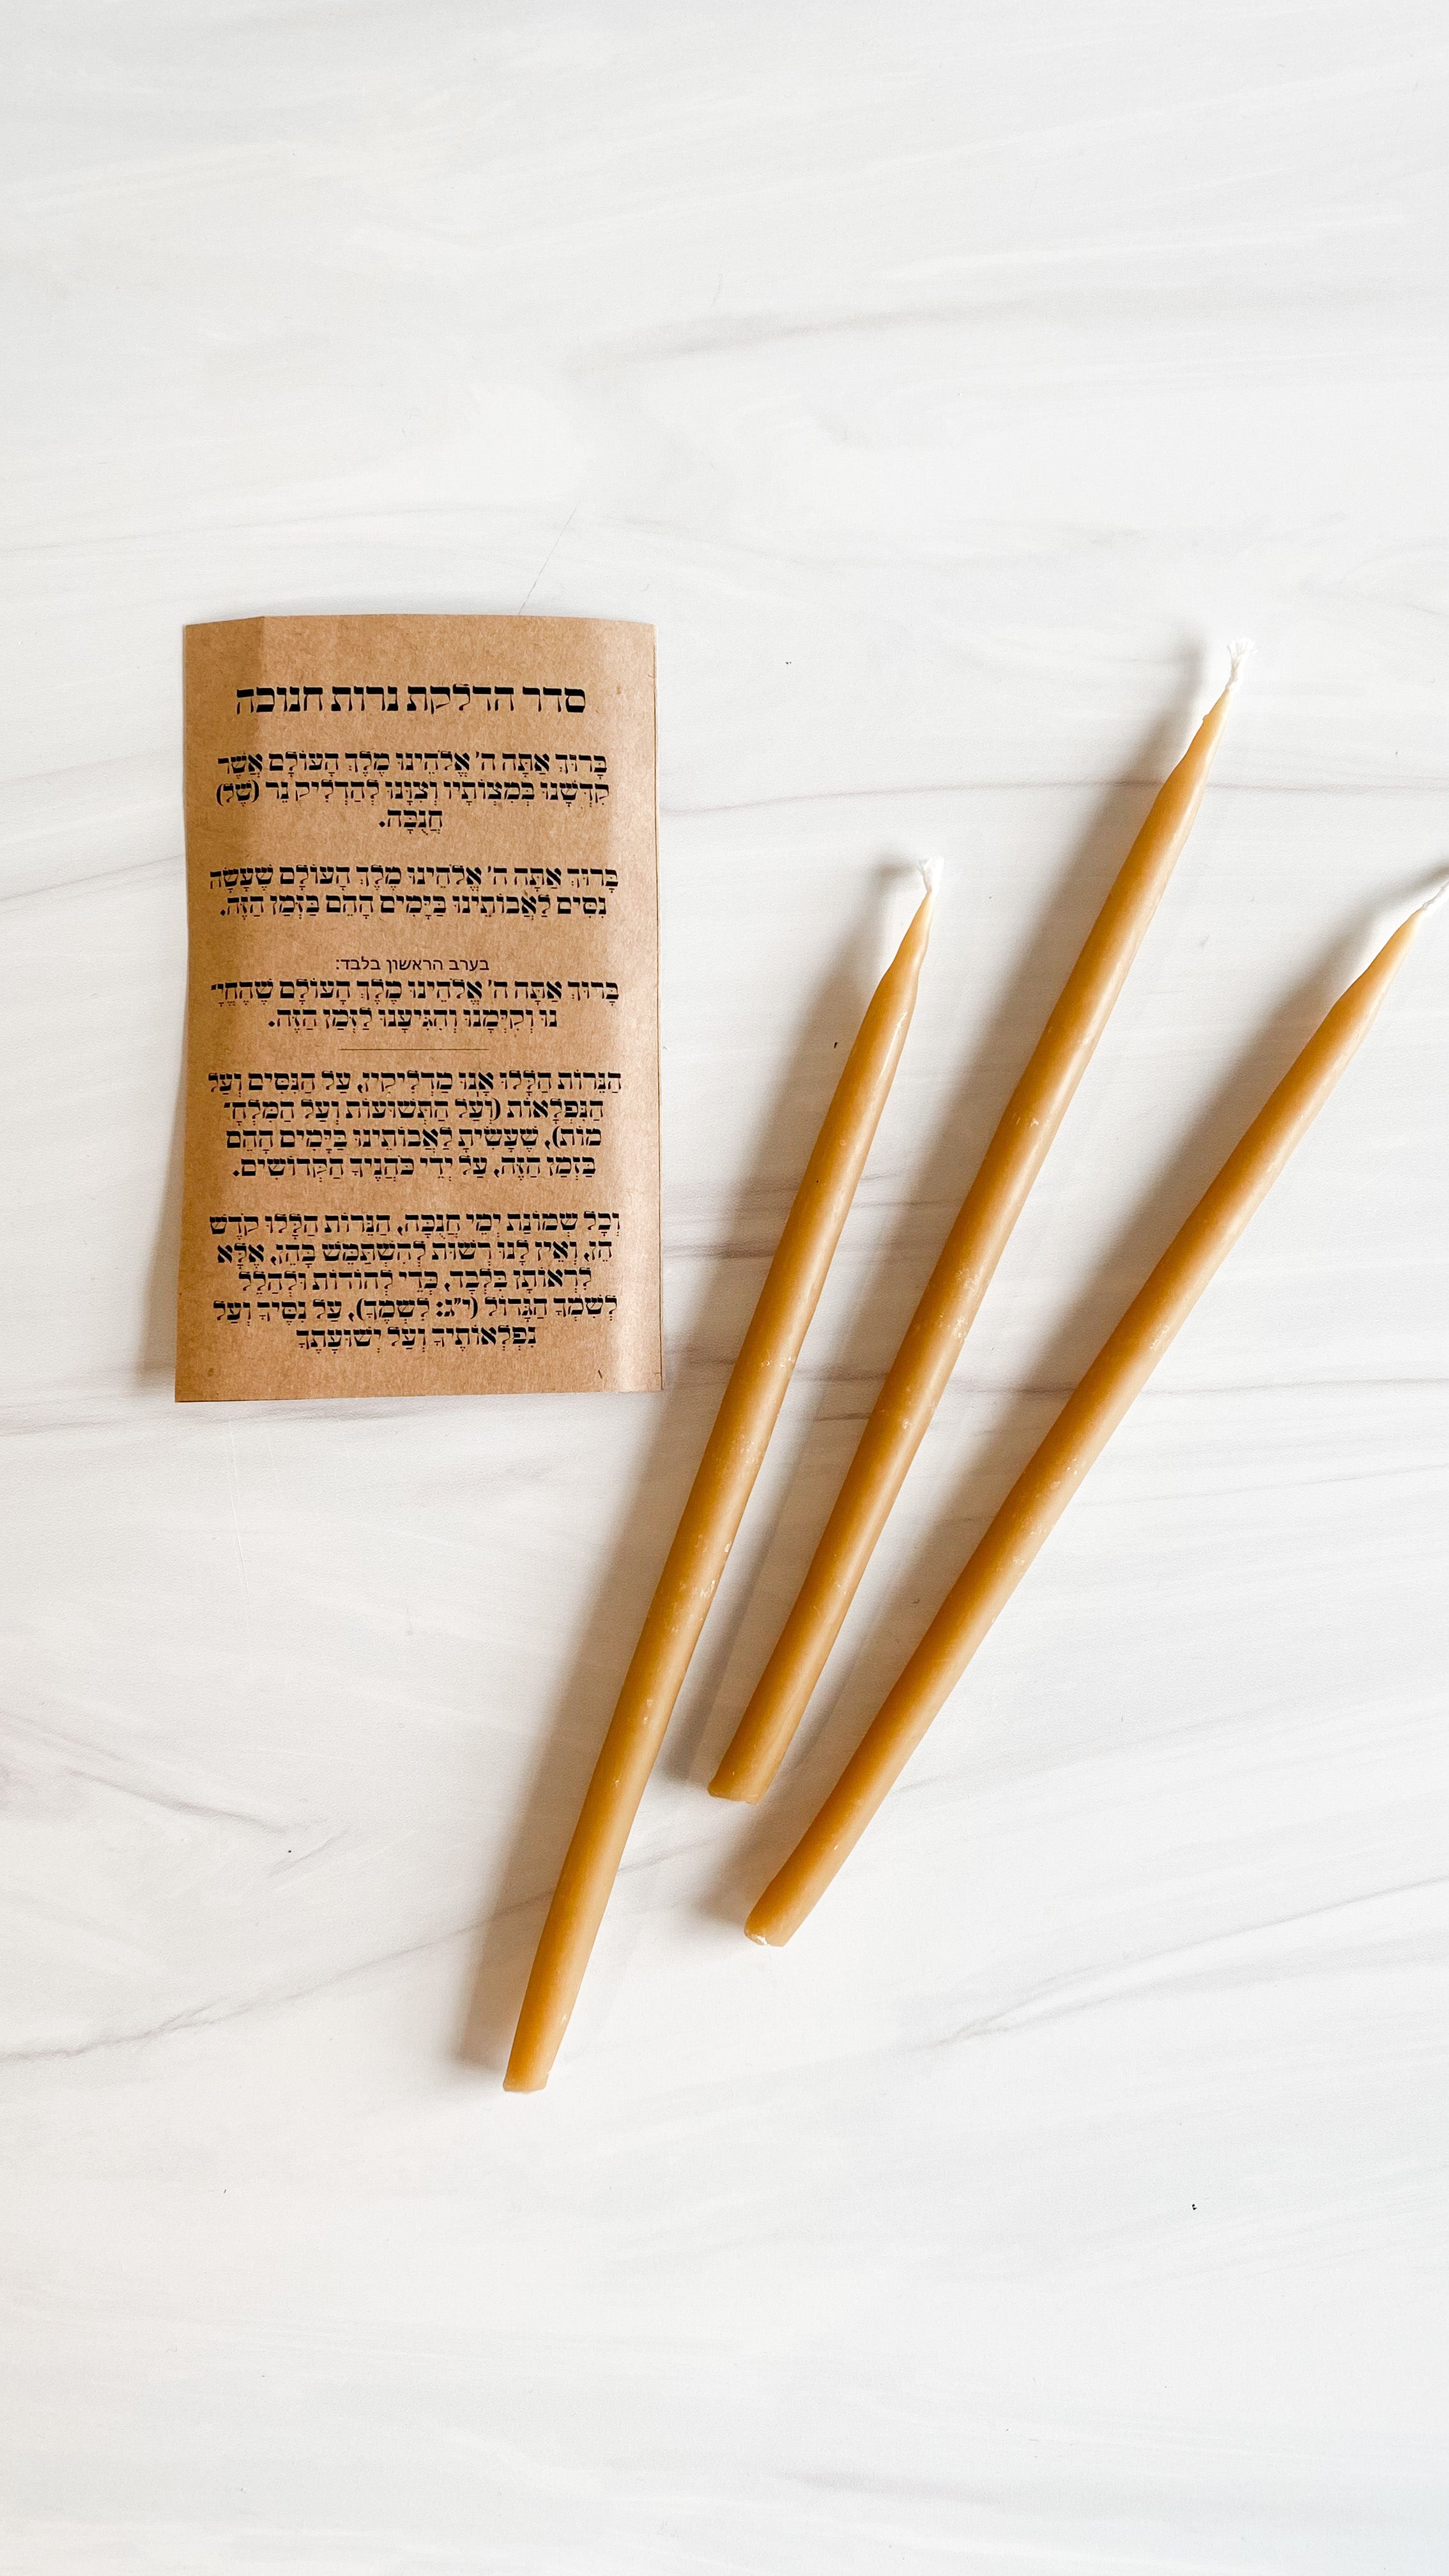 סדר הדלקת נרות חנוכה
בָּרוּךְ אַתָּה ה' אֱלֹהֵינוּ מֶלֶךְ הָעוֹלָם אֲשֶׁר
קִדְּשָׁנוּ בְּמִצְוֹתָיו וְצִוָּנוּ לְהַדְלִיק נֵר (שֶׁל)
חֲנֻכָּה.
בָּרוּךְ אַתָּה ה' אֱלֹהֵינוּ מֶלֶךְ הָעוֹלָם שֶׁעָשָׂה
נִסִּים לַאֲבוֹתֵינוּ בַּיָּמִים הָהֵם בַּזְּמַן הַזֶּה.
בערב הראשון בלבד:
בָּרוּךְ אַתָּה ה' אֱלֹהֵינוּ מֶלֶךְ הָעוֹלָם שֶׁהֶחֱיָ־
נוּ וְקִיְּמָנוּ וְהִגִּיעָנוּ לַזְּמַן הַזֶּה.
הַנֵּרוֹת הַלָּלוּ אָנוּ מַדְלִיקִין, עַל הַנִּסִּים וְעַל
הַנִּפְלָאוֹת (וְעַל הַתְּשׁוּעוֹת וְעַל הַמִּלְחָ־
מוֹת), שֶׁעָשִׂיתָ לַאֲבוֹתֵינוּ בַּיָּמִים הָהֵם
בַּזְּמַן הַזֶּה, עַל יְדֵי כֹּהֲנֶיךָ הַקְּדוֹשִׁים.
וְכָל שְׁמוֹנַת יְמֵי חֲנֻכָּה, הַנֵּרוֹת הַלָּלוּ קֹדֶשׁ
הֵן, וְאֵין לָנוּ רְשׁוּת לְהִשְׁתַּמֵּשׁ בָּהֵן, אֶלָּא
לִרְאוֹתָן בִּלְבָד, כְּדֵי לְהוֹדוֹת וּלְהַלֵּל
לְשִׁמְךָ הַגָּדוֹל (י"ג: לִשְׁמֶךָ), עַל נִסֶּיךָ וְעַל
נִפְלְאוֹתֶיךָ וְעַל יְשׁוּעָתֶךָ